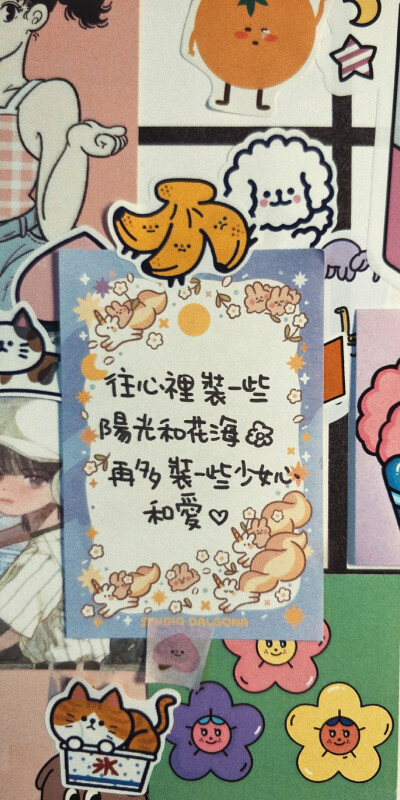 往心裡裝一些
陽光和花海
再多裝一些少女心
和愛♡
STUDIO DALGONA
氷